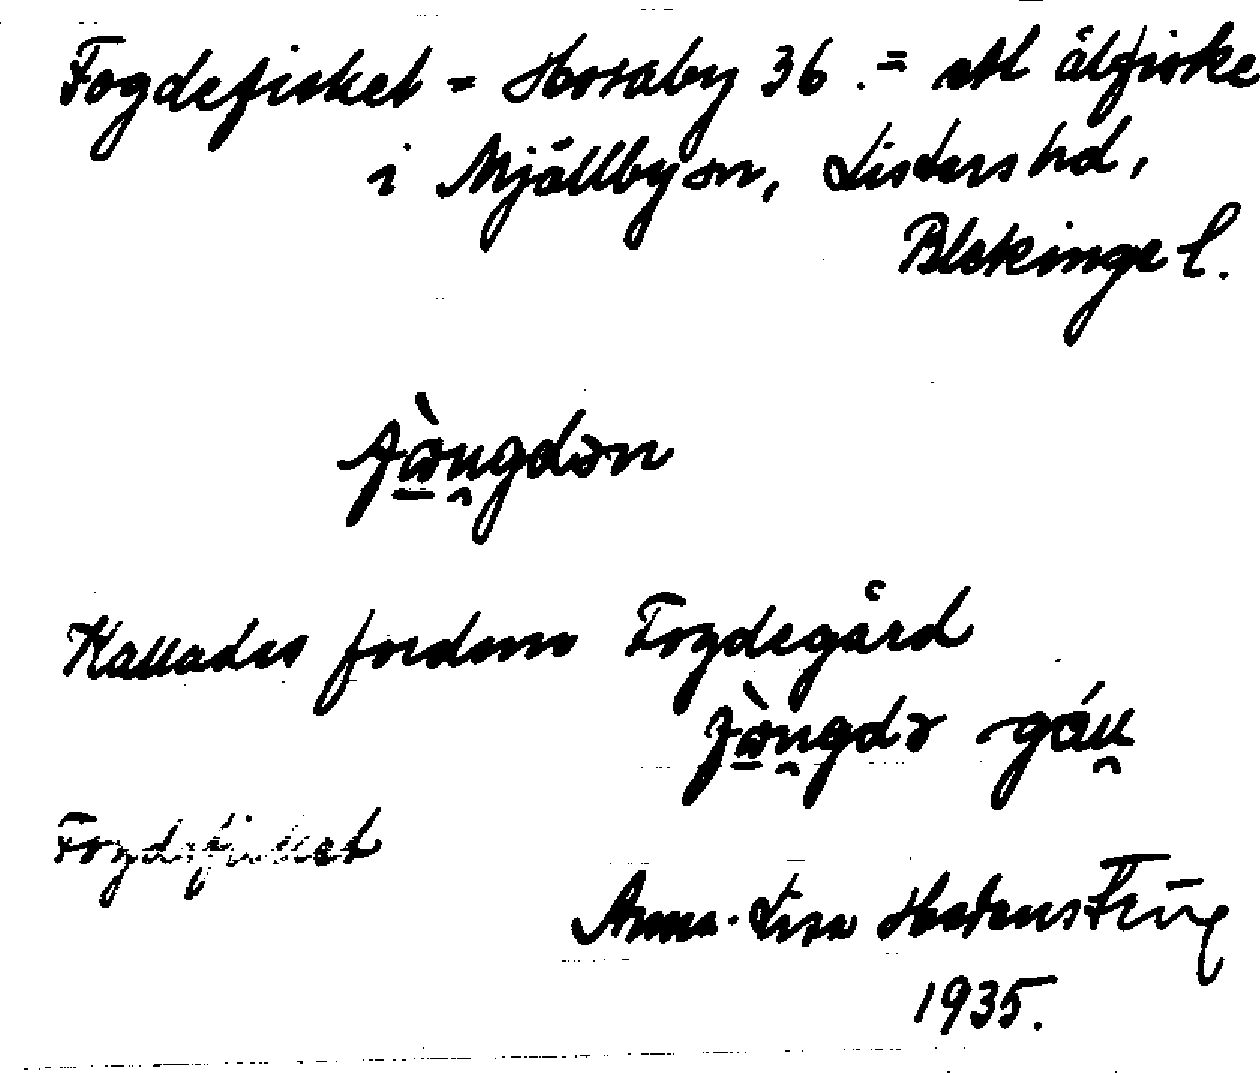 Fogdefisket = Hosaby 36. = ett ålfiske
i Mjällby sn, Listers hd,
Blekinge l.
fɷ̀u̯gdən
Kallades fordom Fogdegård
fɷ̀u̯gdə gáu̯
Fogdefisket
Anna-Lisa
1935.